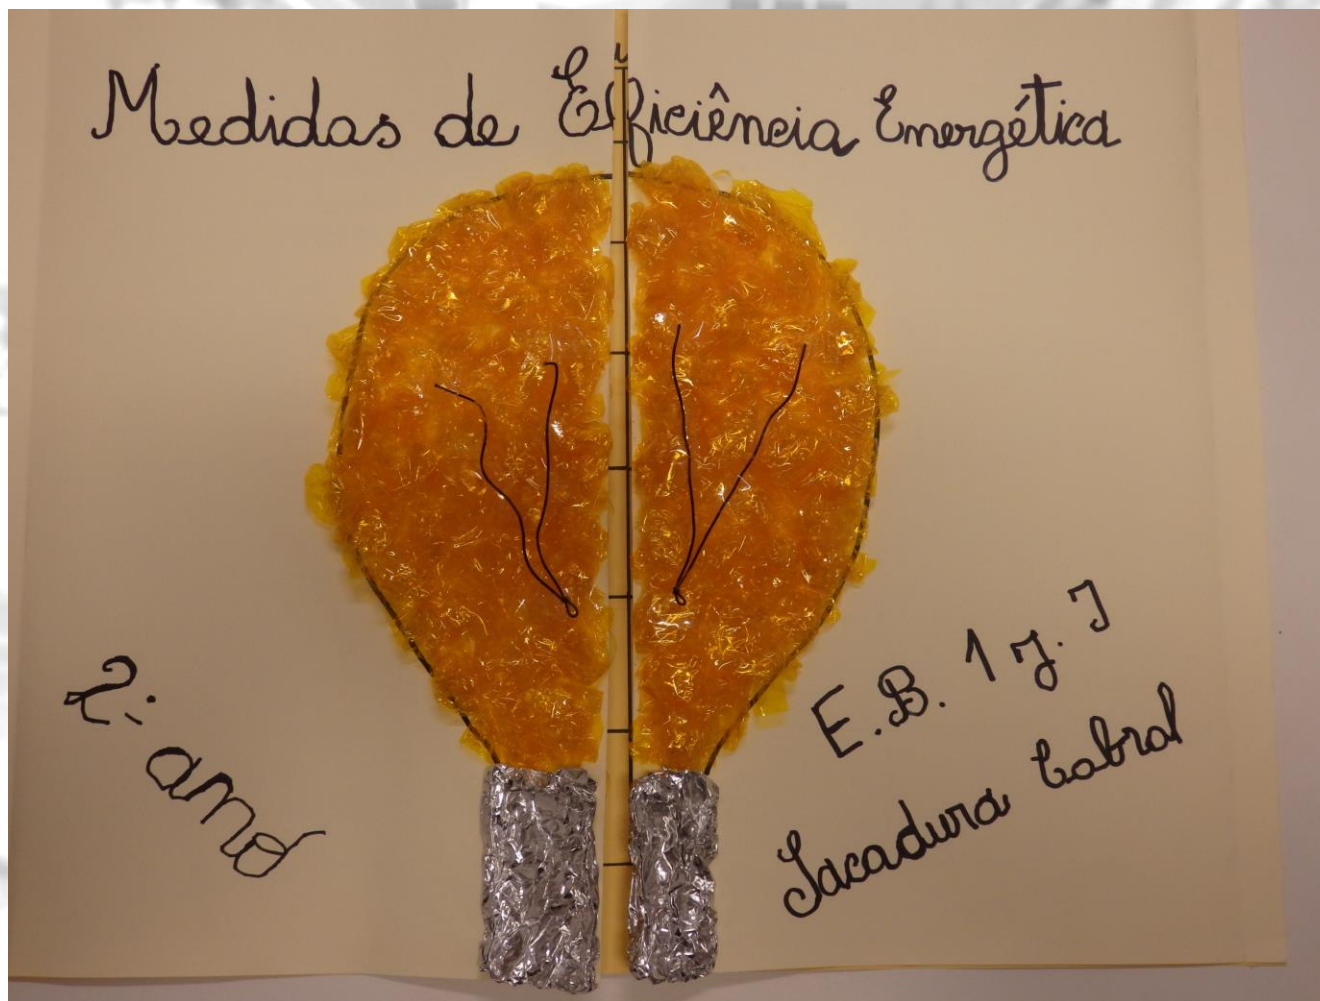 Medidas de Eficiência Energética
2º ano
E.B. 1 J. I
Sacadura Cabral